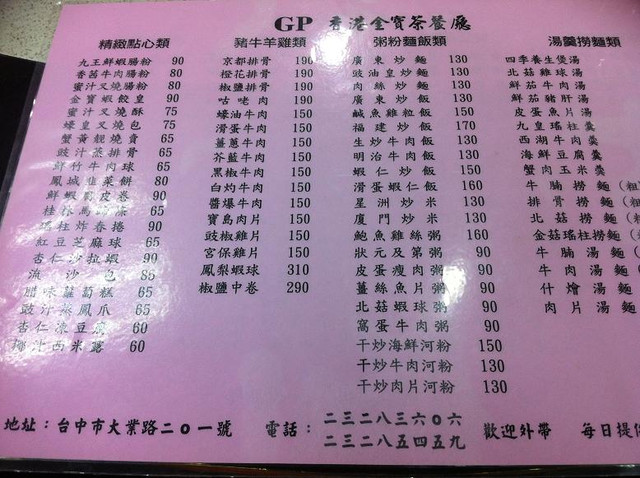 GP 香港金寶茶餐廳
精緻點心類
九王鮮蝦腸粉 90
香茜牛肉腸粉 80
蜜汁叉燒腸粉 80
金寶蝦餃皇 90
蜜汁叉燒酥 75
蠔皇叉燒包 75
蟹黃靚燒賣 65
豉汁蒸排骨 65
鮮竹牛肉球 65
鳳城韮菜餅 80
鮮蝦腐皮卷 90
桂林馬蹄條 65
瑤柱炸春捲 90
紅豆芝麻球 65
杏仁沙拉蝦 90
流沙包 85
腊味蘿蔔糕 65
豉汁蒸鳳爪 65
杏仁凍豆腐 60
椰汁西米露 60
豬牛羊雞類
京都排骨 190
橙花排骨 190
椒鹽排骨 190
咕咾肉 190
蠔油牛肉 150
滑蛋牛肉 150
薑蔥牛肉 150
芥藍牛肉 150
黑椒牛肉 150
白灼牛肉 150
醬爆牛肉 150
寶島肉片 150
豉椒雞片 150
宮保雞片 150
鳳梨蝦球 310
椒鹽中卷 290
粥粉麵飯類
廣東炒麵 130
豉油皇炒麵 130
肉絲炒麵 130
廣東炒飯 130
鹹魚雞粒飯 150
福建炒飯 170
生炒牛肉飯 130
明治牛肉飯 130
蝦仁炒飯 150
滑蛋蝦仁飯 160
星洲炒米 130
廈門炒米 130
鮑魚雞絲粥 160
狀元及第粥 90
皮蛋瘦肉粥 90
薑絲魚片粥 90
北菇蝦球粥 90
窩蛋牛肉粥 90
干炒海鮮河粉 150
干炒牛肉河粉 130
干炒肉片河粉 130
湯羹撈麵類
四季養生煲湯
北菇雞球湯
鮮茄牛肉湯
鮮茄豬肝湯
皮蛋魚片湯
九皇瑤柱羹
西湖牛肉羹
海鮮豆腐羹
蟹肉玉米羹
牛腩撈麵(粗
排骨撈麵(粗
北菇撈麵(
金菇瑤柱撈麵(
牛腩湯麵(
牛肉湯麵
什燴湯麵
肉片湯麵
地址：台中市大業路二o一號
電話：二三二八三六o六
二三二八五四五九
歡迎外帶 每日提